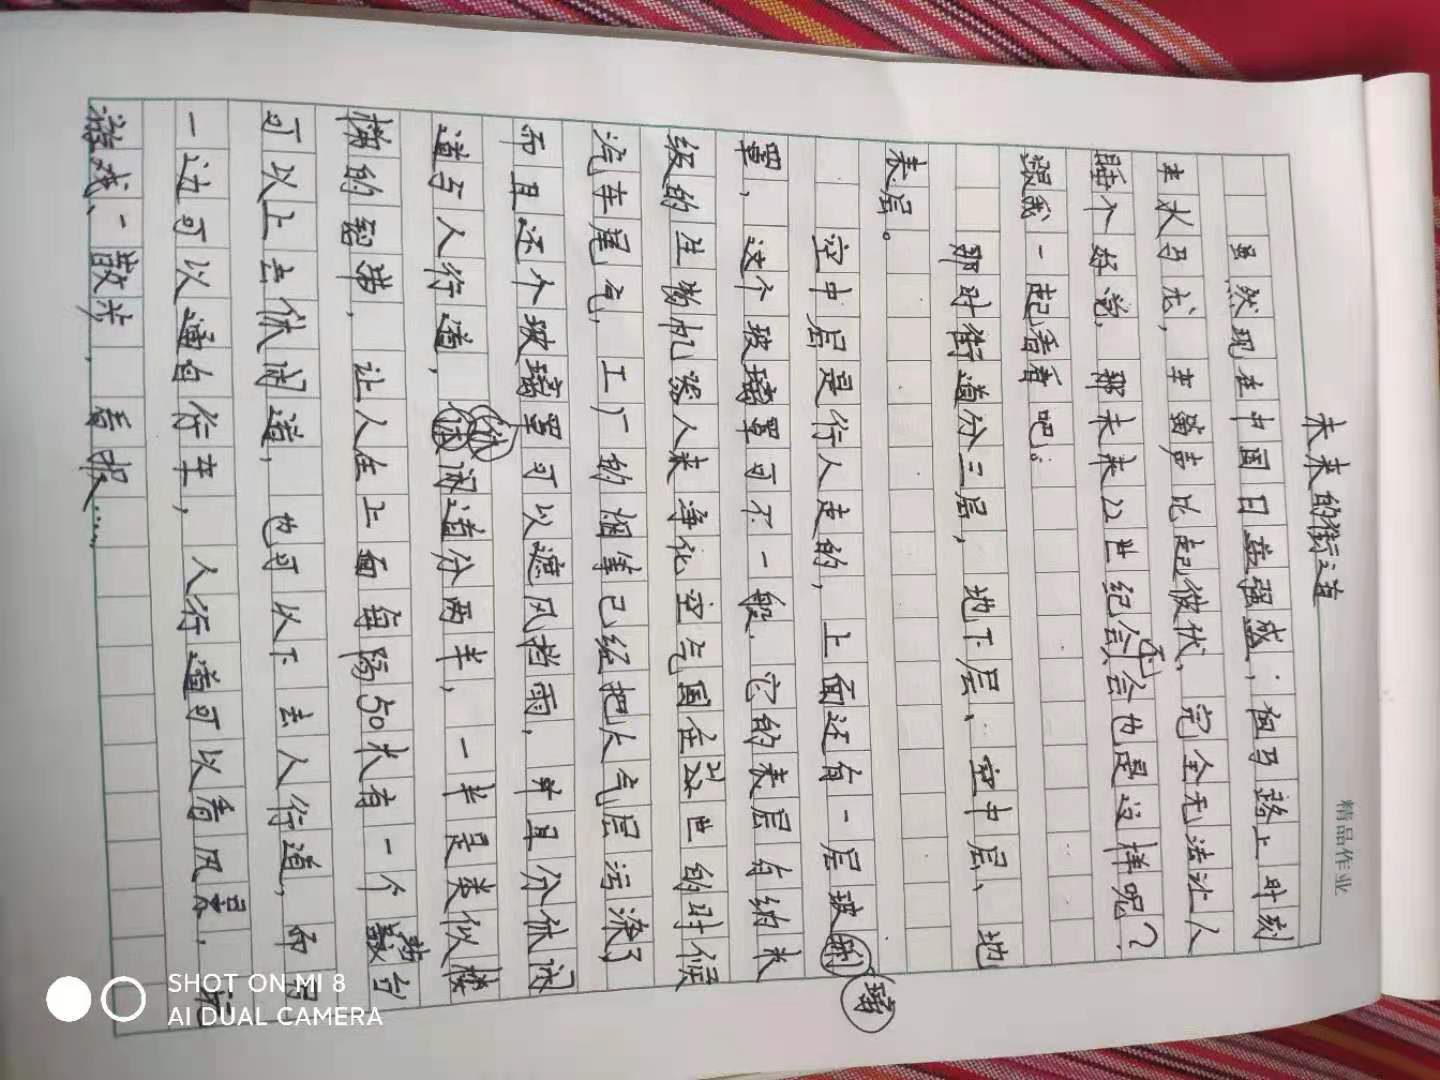 精品作业
未来的街道
虽然现在中国日益强盛,但马路上时刻
车水马龙,车鸣声此起彼伏,完全无法让人
睡个好觉,那未来22世纪会不会也是这样呢?
跟我一起看看吧。
那时街道分三层,地下层、空中层、地
表层。
空中层是行人走的,上面还有一层玻璃
罩,这个玻璃罩可不一般,它的表层有纳米
级的生物机器人来净化空气因在21世的时候
汽车尾气,工厂的烟等已经把大气层污染了
而且还个玻璃罩可以遮风挡雨,并且分休闲
道与人行道,休闲道分两半,一半是类似楼
梯的纽带,让人在上面每隔50米有一个平台
可以上去休闲道,也可以下去人行道,而另
一边可以通自行车,人行道可以看风景,玩
游戏、散步,看报……
SHOT ON MI 8
AI DUAL CAMERA